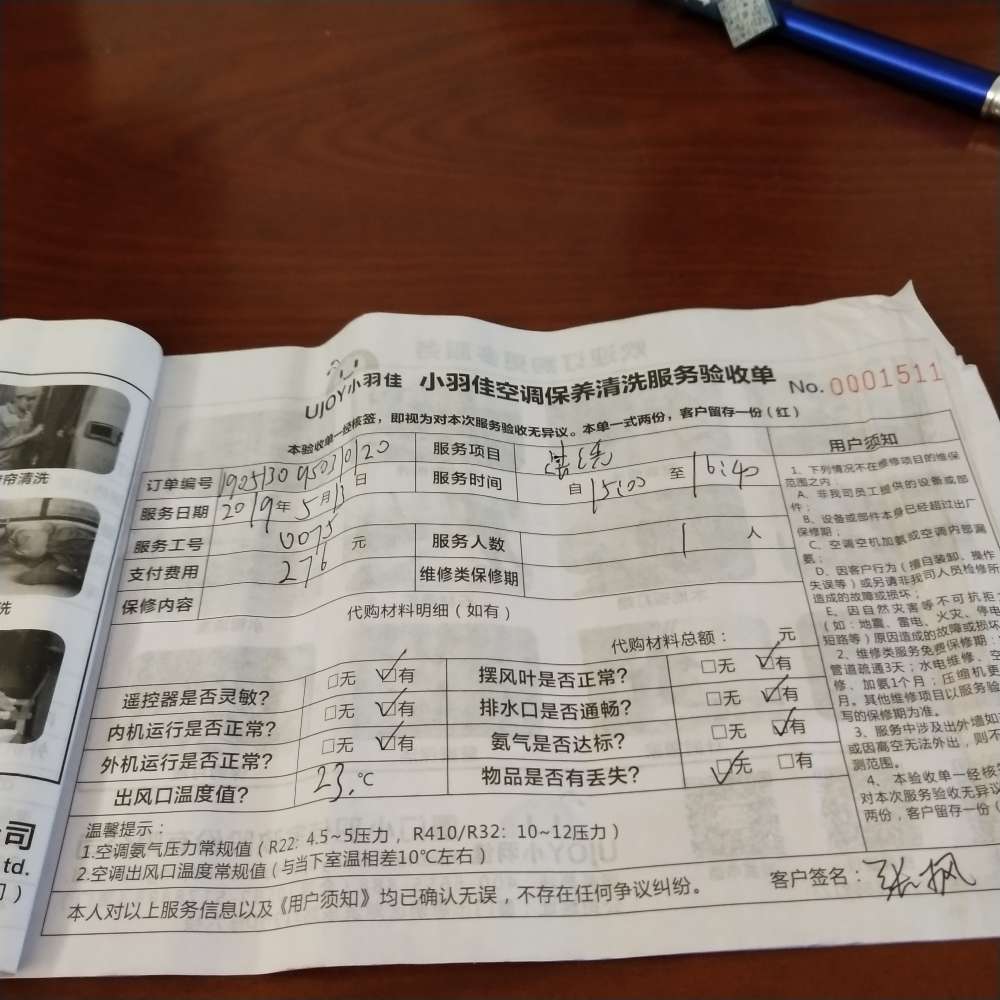 UJOY小羽佳 小羽佳空调保养清洗服务验收单 No. 0001511
本验收单一经核签，即视为对本次服务验收无异议。本单一式两份，客户留存一份（红）
订单编号 服务项目 清洗
服务日期 2019年5月 日 服务时间 自15:00 至16:40
服务工号 0075
服务人数 1 人
支付费用 276 元 维修类保修期
保修内容
代购材料明细（如有）
代购材料总额： 元
遥控器是否灵敏？ □无 ☑有 摆风叶是否正常？ □无 ☑有
内机运行是否正常？ □无 ☑有 排水口是否通畅？ □无 ☑有
外机运行是否正常？ □无 ☑有 氨气是否达标？ □无 ☑有
出风口温度值？ 23.℃ 物品是否有丢失？ ☑无 □有
温馨提示：
1.空调氨气压力常规值（R22：4.5~5压力，R410/R32：10~12压力）
2.空调出风口温度常规值（与当下室温相差10℃左右）
本人对以上服务信息以及《用户须知》均已确认无误，不存在任何争议纠纷。
客户签名：张枫
用户须知
1、下列情况不在维修项目的维保
范围之内：
A、非我司员工提供的设备或部
件；
B、设备或部件本身已经超过出厂
保修期；
C、空调空机加氨或空调内部漏
氨；
D、因客户行为（擅自装卸、操作
失误等）或另请非我司人员检修所
造成的故障或损坏；
E、因自然灾害等不可抗拒
（如：地震、雷电、火灾、停电
短路等）原因造成的故障或损坏
2、维修类服务免费保修期：
管道疏通3天；水电维修、空
修、加氨1个月；压缩机更
月。其他维修项目以服务验
写的保修期为准。
3、服务中涉及出外墙如
或因高空无法外出，则不
测范围。
4、本验收单一经核
对本次服务验收无异议
两份，客户留存一份（
帘清洗
洗
司
td.